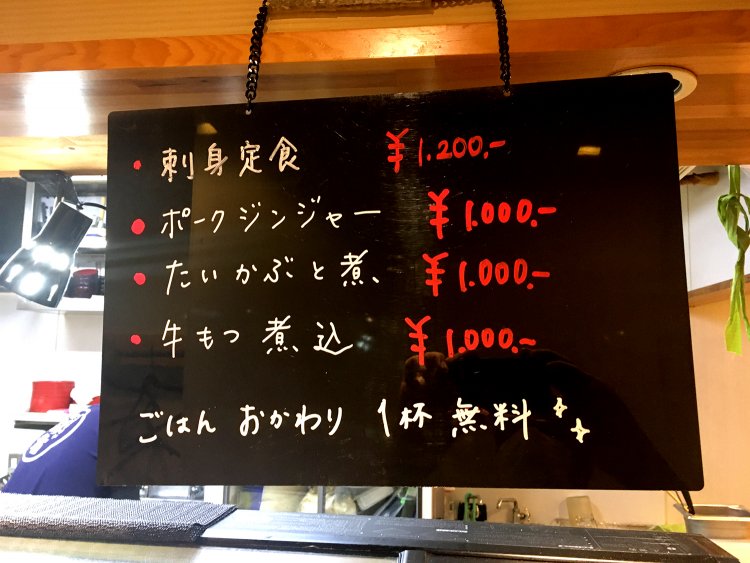 ・刺身定食 ¥1.200.-
・ポークジンジャー ¥1.000.-
・たいかぶと煮、 ¥1.000.-
・牛もつ煮込 ¥1.000.-
ごはん おかわり 1杯 無料